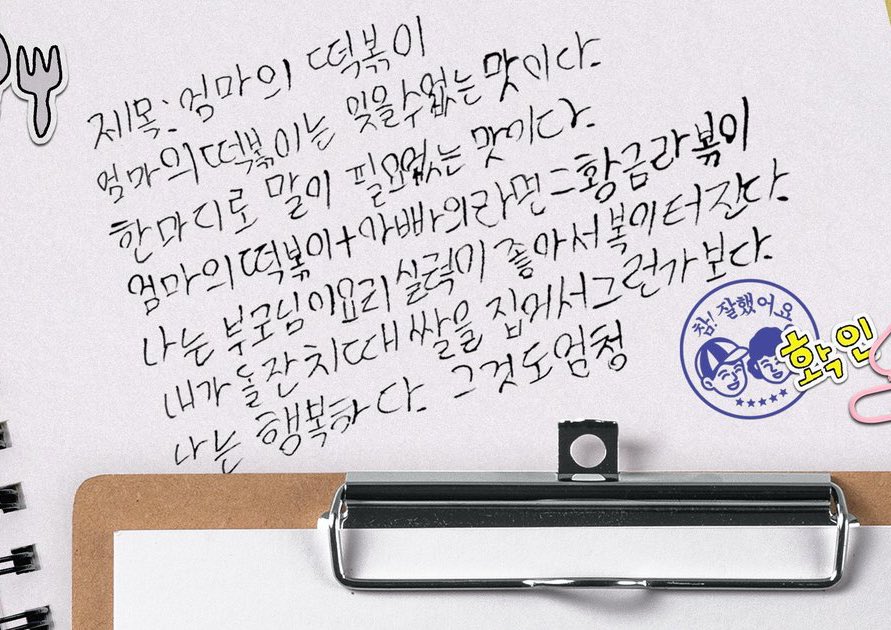 제목: 엄마의 떡볶이
엄마의 떡볶이는 잊을수없는 맛이다.
한마디로 말이 필요없는 맛이다.
엄마의 떡볶이+아빠의라면=황금라볶이
나는 부모님이요리 실력이 좋아서복이터진다.
내가 돌잔치때 쌀을 집어서그런가보다.
나는 행복하다. 그것도엄청
참! 잘했어요
확인